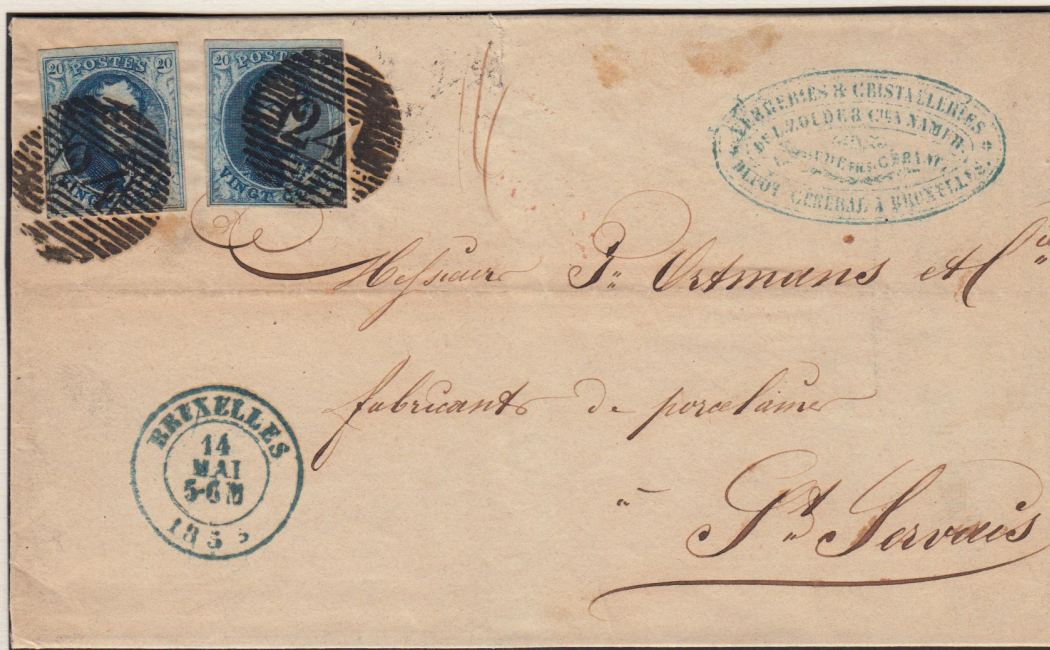 20 POSTES 20
VINGT
24
20 POSTES 20
VINGT
24
VERRERIES & CRISTALLERIES
DE L. ZOUDE & Cie A NAMUR
DÉPOT GÉNÉRAL À BRUXELLES.
Messieurs P. Ortmans et Cie
fabricants de porcelaines
à
St Servais
BRUXELLES
14
MAI
5-6 M
1855